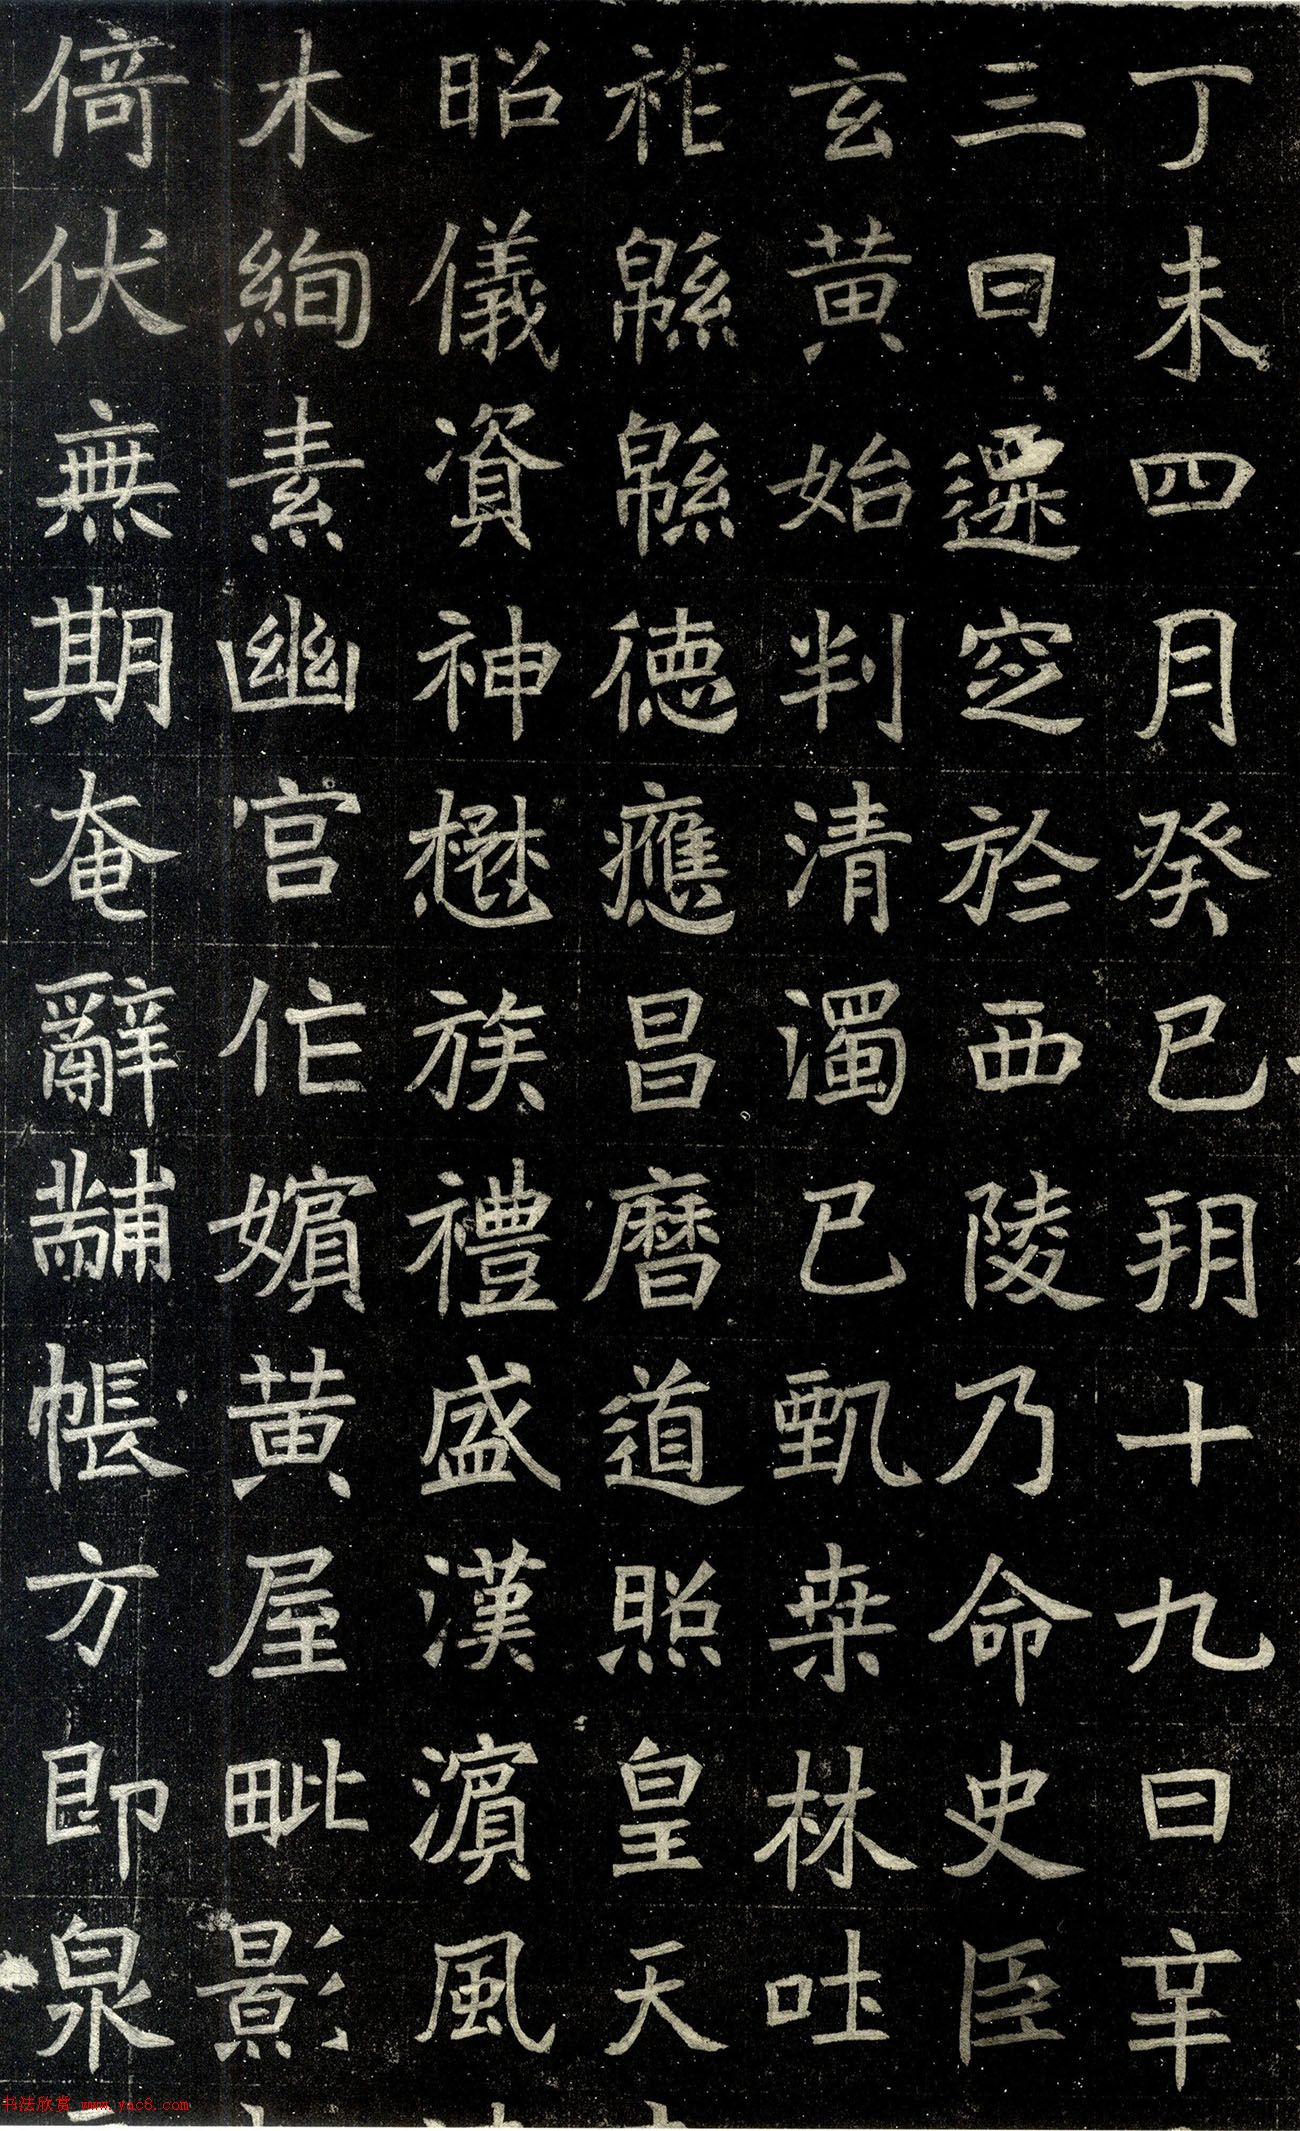 丁未四月癸巳朔十九日辛
三日遷窆於西陵乃命史臣
玄黄始判清濁已甄桒林吐
祚緜緜德應昌曆道照皇天
昭儀資神懋族禮盛漢濵風
木絢素幽宫伫嬪黄屋毗影
倚伏無期奄辭黼帳方即泉
书法欣赏 www.yac8.com